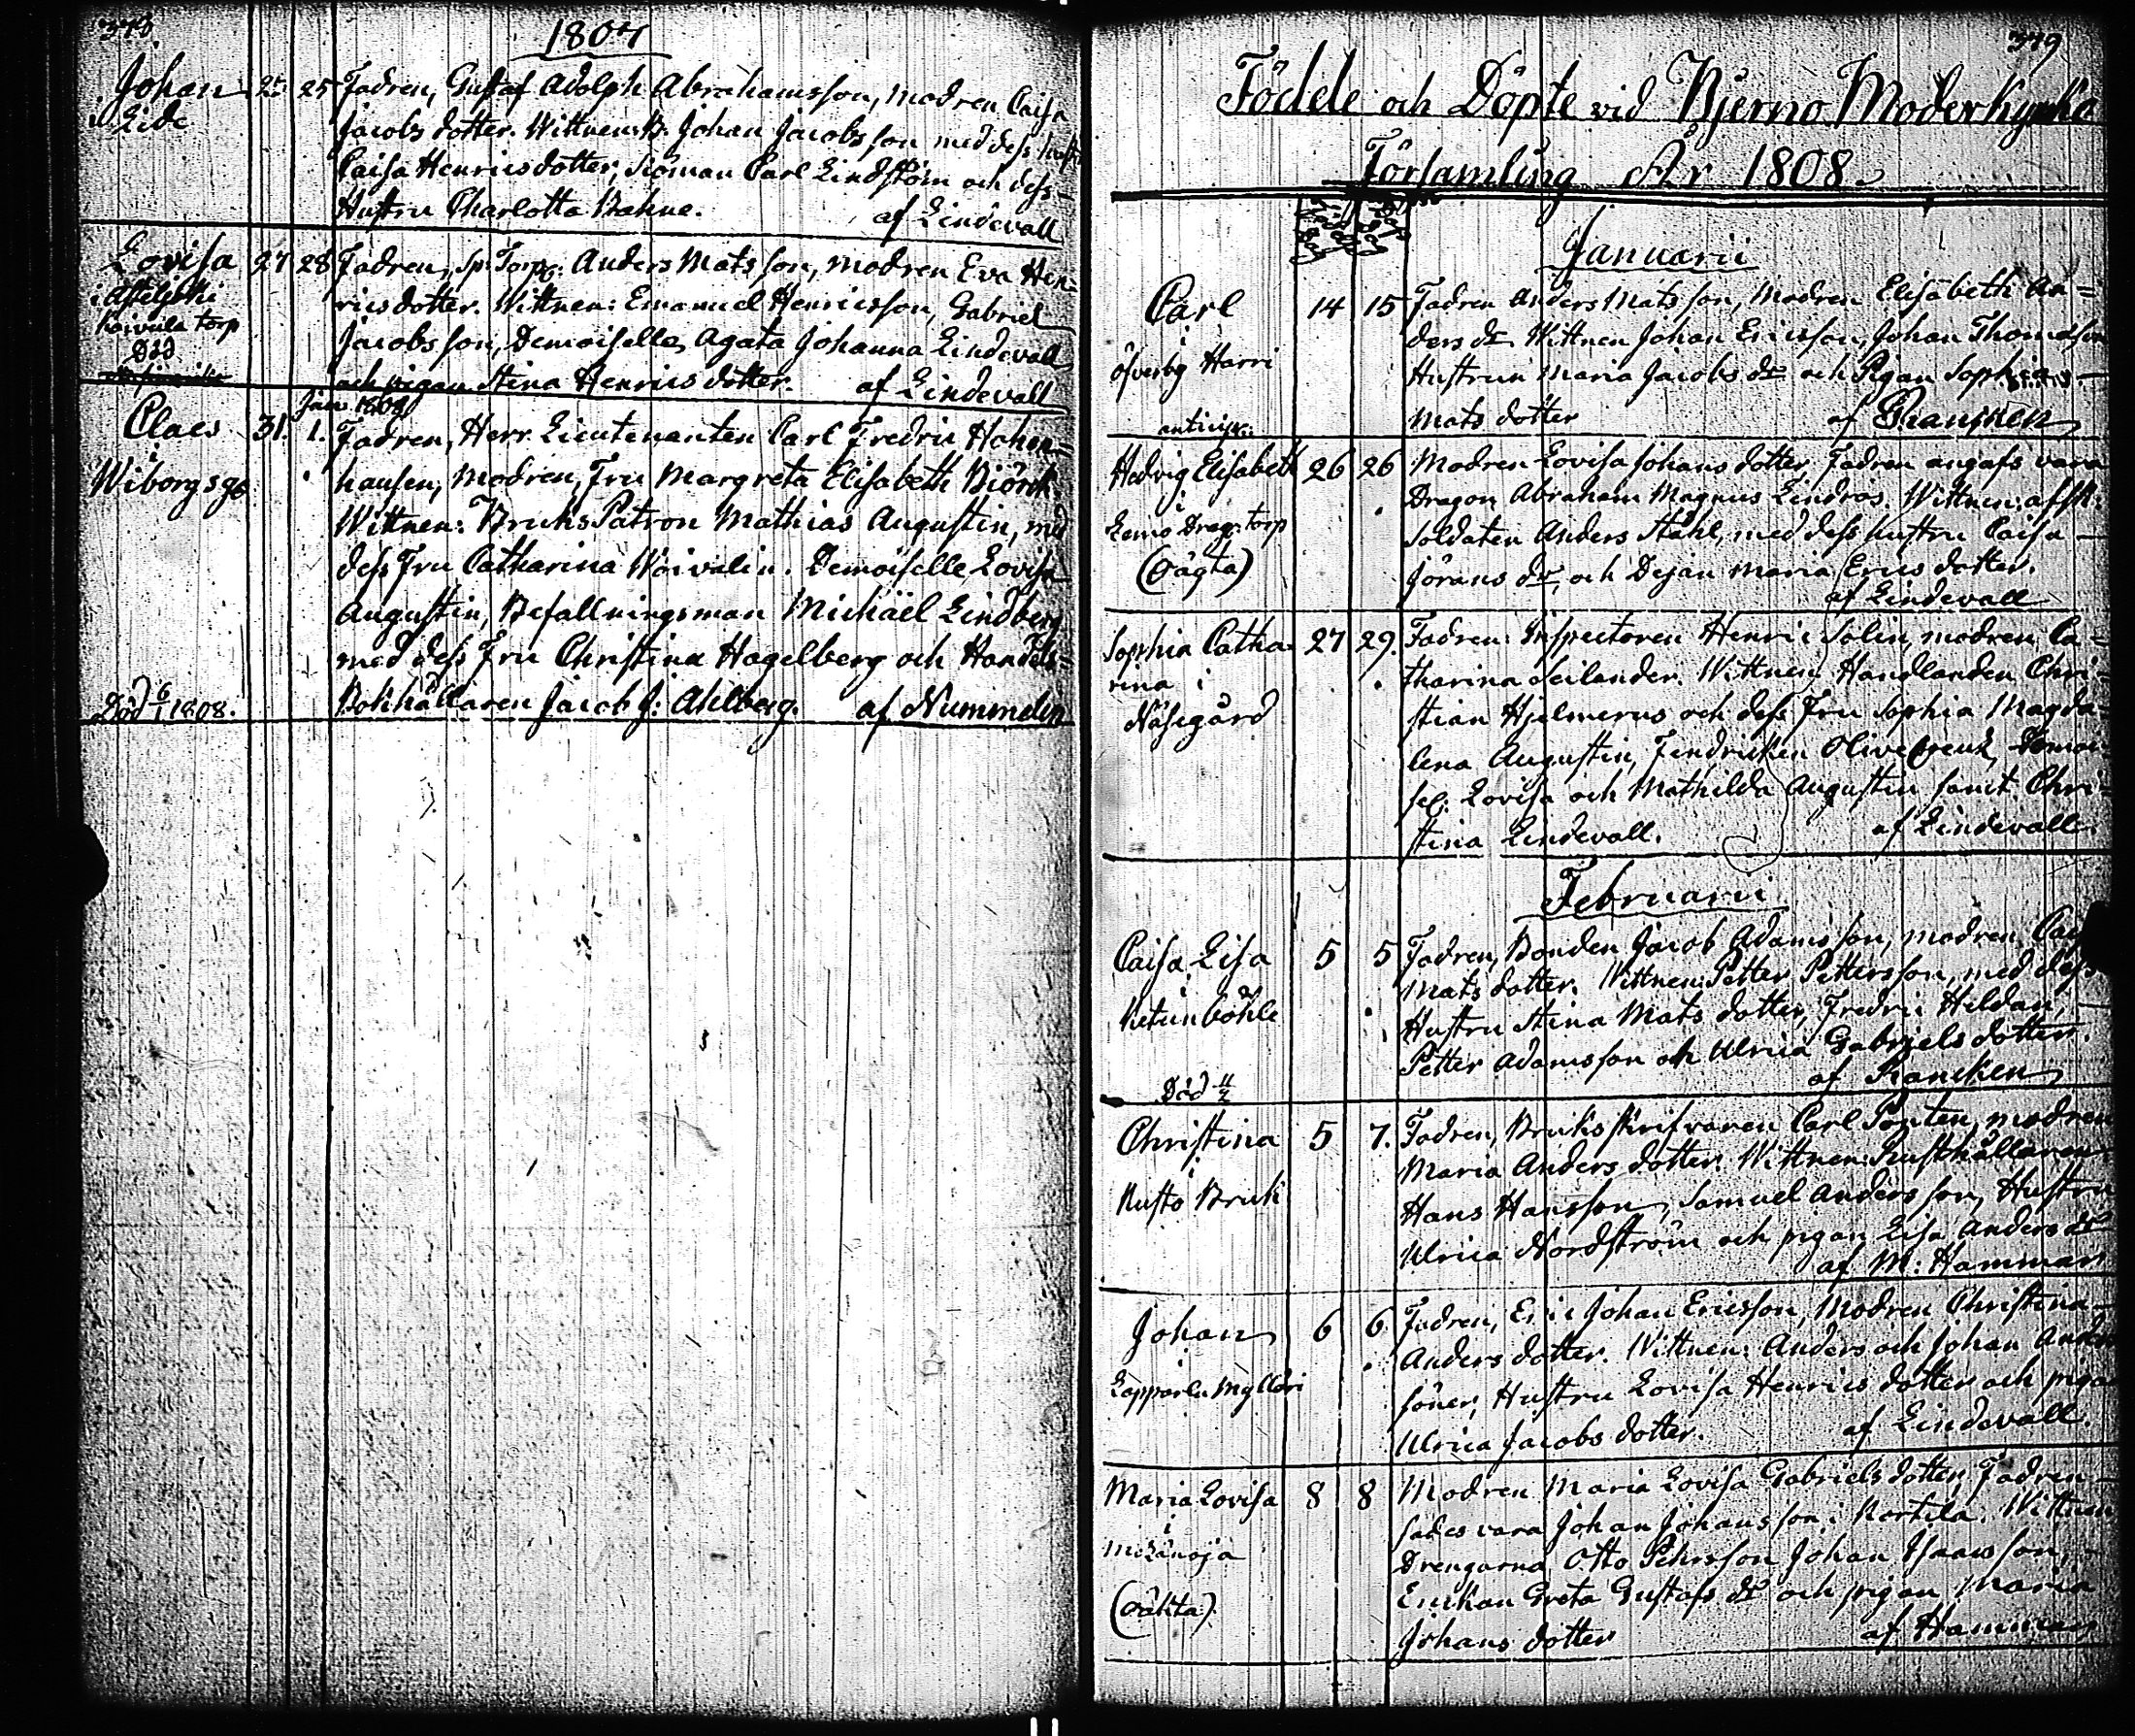 378
1807
Johan 25 25 Fadren, Gustaf Adolph Abrahamsson, modren Caisa
i Lide Jacobs dotter. Wittnen: B. Johan Jacobsson med dess hustru
Caisa Henricsdotter, Siöman Carl Lindström och dess
Hustru Charlotta Bahne. af Lindevall
Lovisa 27 28 Fadren, Sp: Torp: Anders Matsson, modren Eva Hen-
i Asteljoki ricsdotter. Wittnen: Emanuel Henricsson, Gabriel
Koivula torp Jacobsson, Demoiselle Agata Johanna Lindevall
Död och pigan Stina Henrics dotter. af Lindevall
Jan. 1808
Claes 31. 1. Fadren, Herr Lieutenanten Carl Fredric Hohen-
i
Wiborgs gd hausen, modren, Fru Margreta Elisabeth Biörck.
Wittnen: Bruks Patron Mathias Augustin, med
dess Fru Catharina Woivalin. Demoiselle Lovisa
Augustin, Befallningsman Michaël Lindberg
med dess Fru Christina Hagelberg och Handels-
Död 6/1 1808. Bokhållaren Jacob J: Ahlberg. af Nummelin
379
Födde och Döpte vid Bjerno Moderkyrko
Församling År 1808.
Januarii
Carl 14 15 Fadren Anders Matsson, Modren Elisabeth An-
i ders dr Wittnen Johan Ericsson, Johan Thomasson
öfverby Harri Hustrun Maria Jacobs dr och Pigan Sophia
anticip: Mats dotter af Prancken
Hedvig Elisabeth 26 26 Modren Lovisa Johans dotter, Fadren angafs vara
i Dragon Abraham Magnus Lindros. Wittnen: afsk:
Lemo Drag: torp Soldaten Anders Ståhl, med dess hustru Caisa
(oägta) Jörans dr, och Dejan Maria Erics dotter.
af Lindevall
Sophia Catha- 27 29. Fadren: Inspectoren Henric Solin, modren Ca-
rina i tharina Seilander. Wittnen: Handlanden Chri-
Näsegård stian Hjelmerus och dess Fru Sophia Magda-
lena Augustin, Fendricken Olivecreutz, Demoi-
sel: Lovisa och Mathilda Augustin samt Chri-
stina Lindevall. af Lindevall.
Februarii
Caisa Lisa 5 5 Fadren, Bonden Jacob Adamsson, modren
i Mats dotter. Wittnen: Petter Pettersson, med dess
Ketunböhle Hustru Stina Mats dotter, Fredric Hildan,
Petter Adamsson och Ulrica Gabriels dotter.
Död 11/2 af Prancken
Christina 5 7. Fadren, Bruks skrifvaren Carl Ponten, modren
i Maria Anders dotter. Wittnen: Rusthållaren
Kusto Bruk Hans Hansson, Samuel Andersson, Hustru
Ulrica Nordström och pigan Lisa Anders dr
af M: Hammar
Johan 6 6. Fadren, Eric Johan Ericsson, Modren Christina
i Anders dotter. Wittnen: Anders och Johan Anders
Lapparla Mylläri söner, Hustru Lovisa Henrics dotter och pigan
Ulrica Jacobs dotter. af Lindevall.
Maria Lovisa 8 8 Modren Maria Lovisa Gabriels dotter, Fadren
i sades vara Johan Johansson i Kortila. Wittnen
Drengarna Otto Pehrsson Johan Isaacsson,
Enkan Greta Gustafs dr och pigan Maria
(oäkta). Johans dotter af Hammar